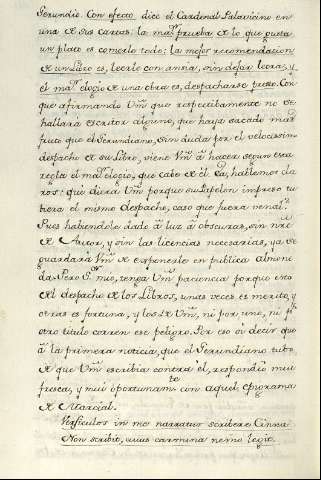 Gerundio. Con efecto dice el Cardenal Palavicino en
una de sus cartas: la mayor prueba de lo que gusta
un plato es comerlo todo: la mejor recomendacion
de un Libro es, leerle con ansia, sin dejar letra, y
el mayor elogio de una obra es, despacharse presto. Con
que afirmando Vm. que respectibamente no se
hallará escritor alguno, que haya sacado mas
fruto que el Gerundiano, sin duda por el velocissimo
despacho de su Libro, viene Vm. á hacer segun esta
regla el mayor elogio, que cabe de él. Ea, hablemos cla
ros: que diera Vm. porque su Papelon impreso tu
biera el mismo despacho, caso que fuera venal.
Pues habiendole dado á luz á obscuras, sin nre.
de Autor, y sin las licencias necesarias, ya se
guardará Vm. de exponerle en publica almone
da. Pero S. mio, tenga Vm. paciencia porque esto
del despacho de los Libros, unas veces es merito, y
otras es fortuna, y los de Vm. ni por uno, ni pr.
otro titulo corren ese peligro. Por eso oí decir que
á la primera noticia, que el Gerundiano tubo,
de que Vm. escribia contra él, respondio mui
fresca, y mui oportunamte. con aquel epigrama
de Marcial.
Versiculos in me narratur scribere Cinna
Non scribit, cuius carmina nemo legit.